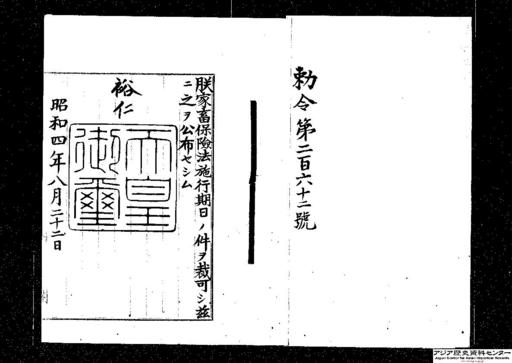 勅令第二百六十二號
朕家畜保險法施行期日ノ件ヲ裁可シ茲
ニ之ヲ公布セシム
裕仁
天皇
御璽
昭和四年八月二十二日
アジア歴史資料センター
Japan Center for Asian Historical Records